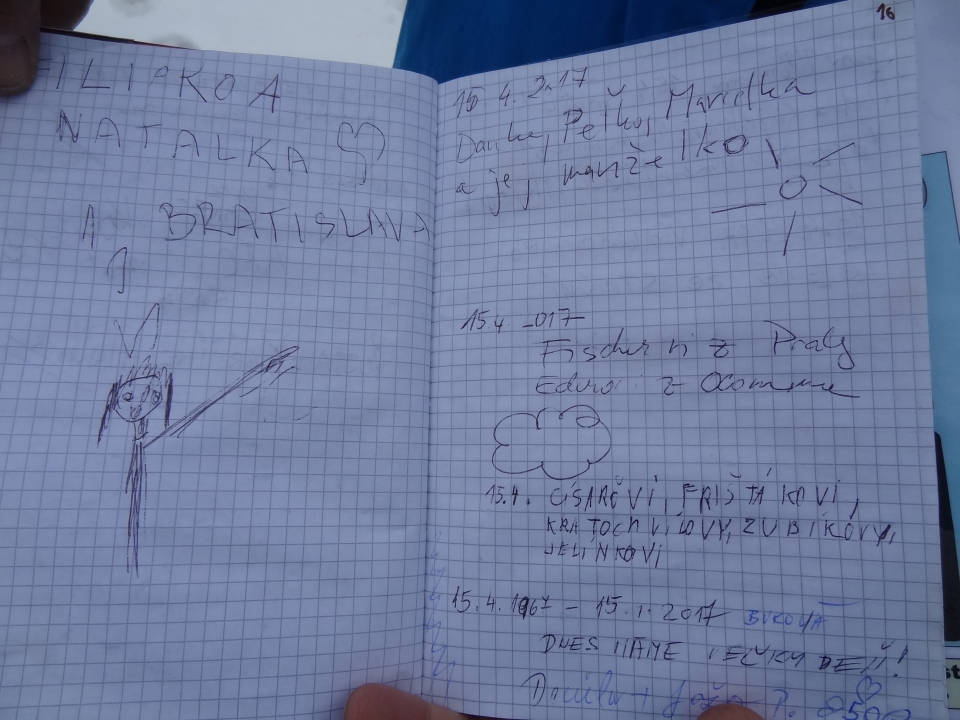 FILIPKO A
NATALKA
BRATISLAVA
16
15 4. 2017
Danka, Peťko, Marcelka
a jej manželko
15.4 2017
Fischerovi z Prahy
z Olomouce
15.4. CÍSAŘOVI, FRIŠTÁKOVI,
KRATOCHVÍLOVY, ZUBÍKOVY,
JELÍNKOVI
15.4.1967 – 15.4.2017 BUKOVÁ
DNES MÁME VELKÝ DEŇ!